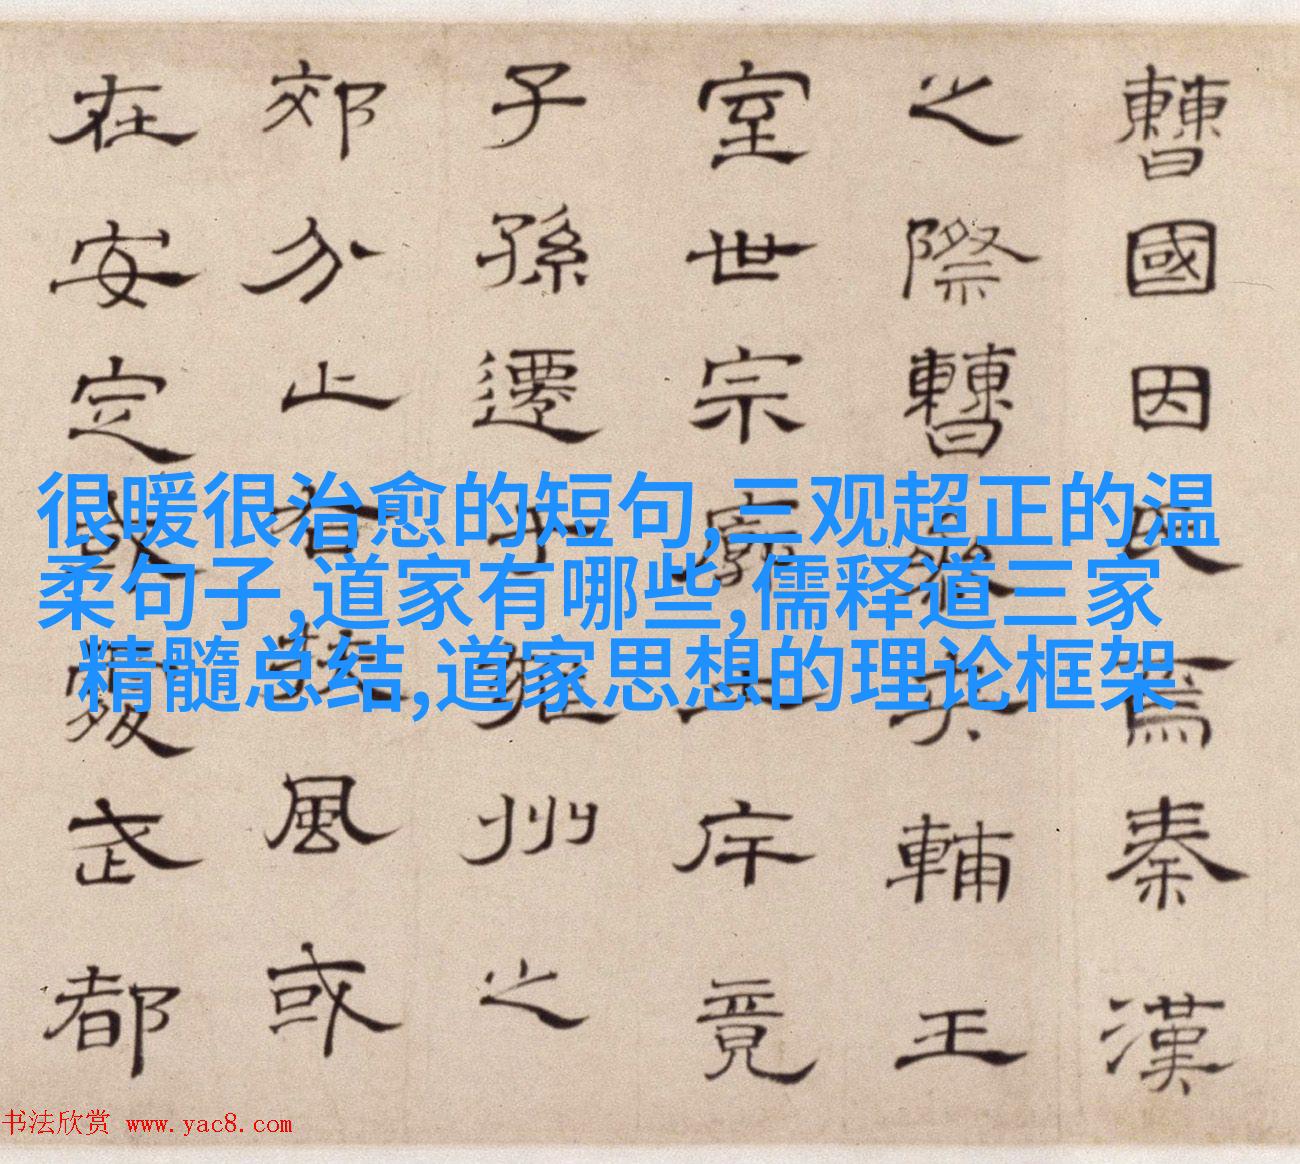 曹國因氏焉秦漢
之際曹參夾輔王
室世宗廓土斥竟
子孫遷于雍州之
郊分止右扶風或
在安定或處武都
很暖很治愈的短句,三观超正的温
柔句子,道家有哪些,儒释道三家
精髓总结,道家思想的理论框架
书法欣赏 www.yac8.com